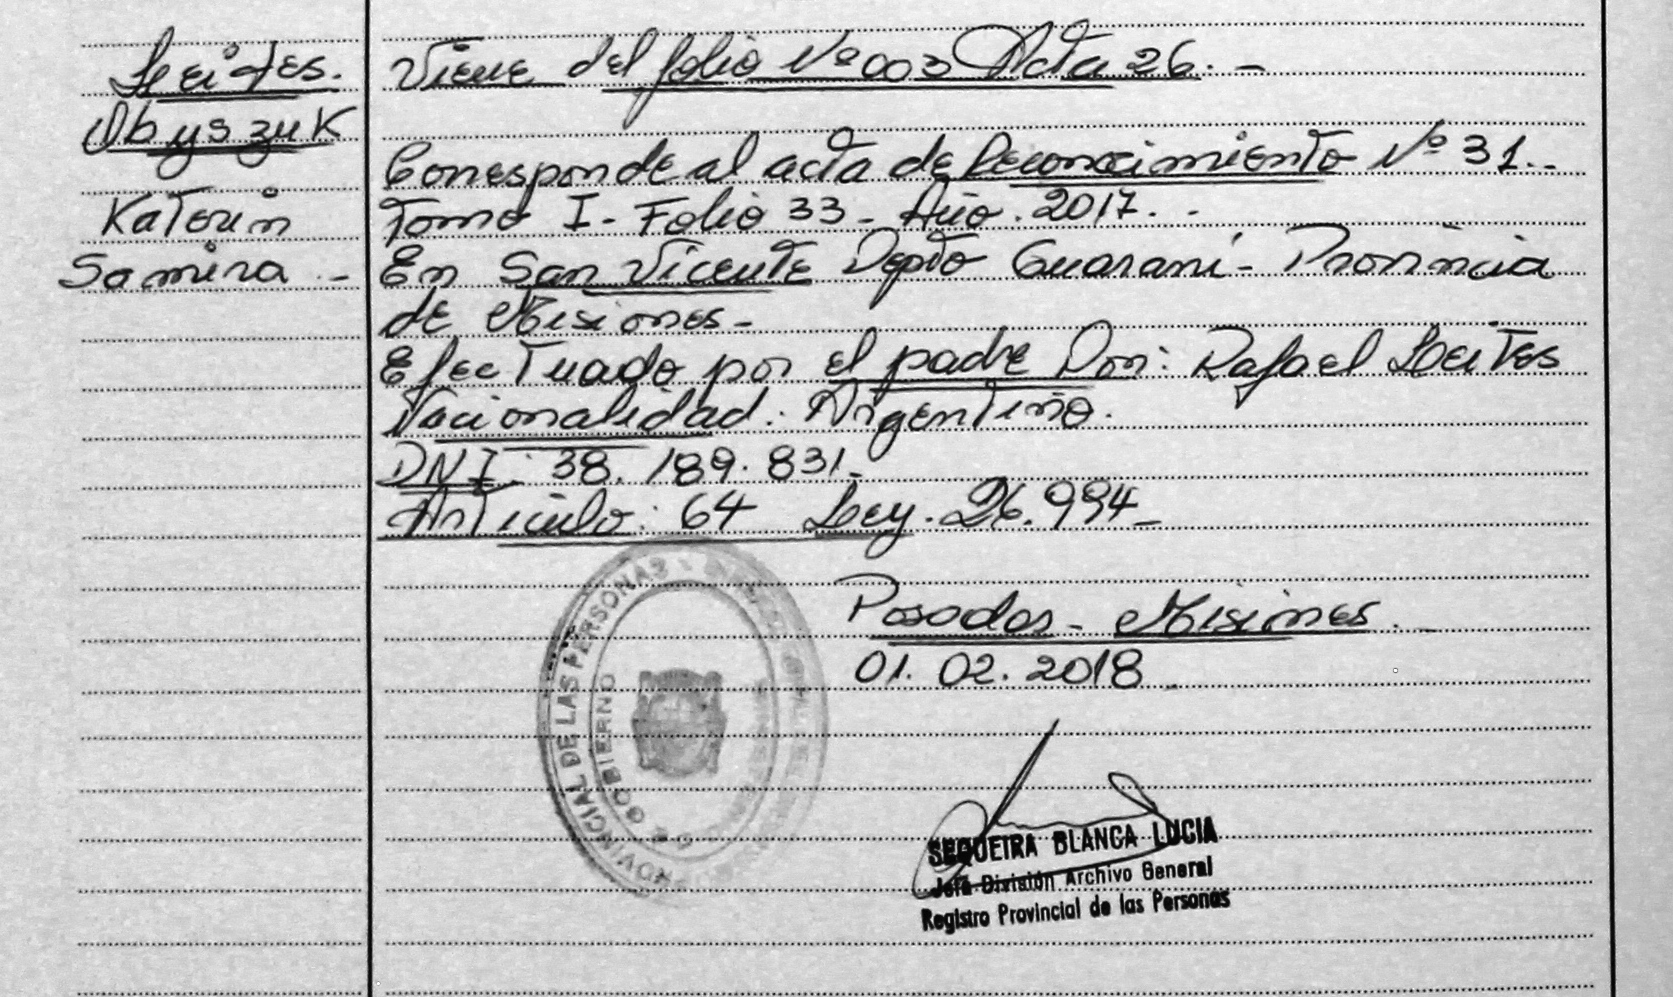 Leites.
Obyszuk
Katerin
Samira -
Viene del folio Nº 003 Acta 26. -
Corresponde al acta de Reconocimiento Nº 31.-
Tomo I - Folio 33 - Año. 2017. -
En San Vicente Depto Guaraní - Provincia
de Misiones -
Efectuado por el padre Don: Rafael Leites
Nacionalidad: Argentino.
DNI: 38.189.831.
Artículo: 64 Ley. 26.994 -
Posadas - Misiones.
01. 02. 2018
PROVINCIAL DE LAS PERSONAS
GOBIERNO
SEQUEIRA BLANCA LUCIA
Jefa División Archivo General
Registro Provincial de las Personas